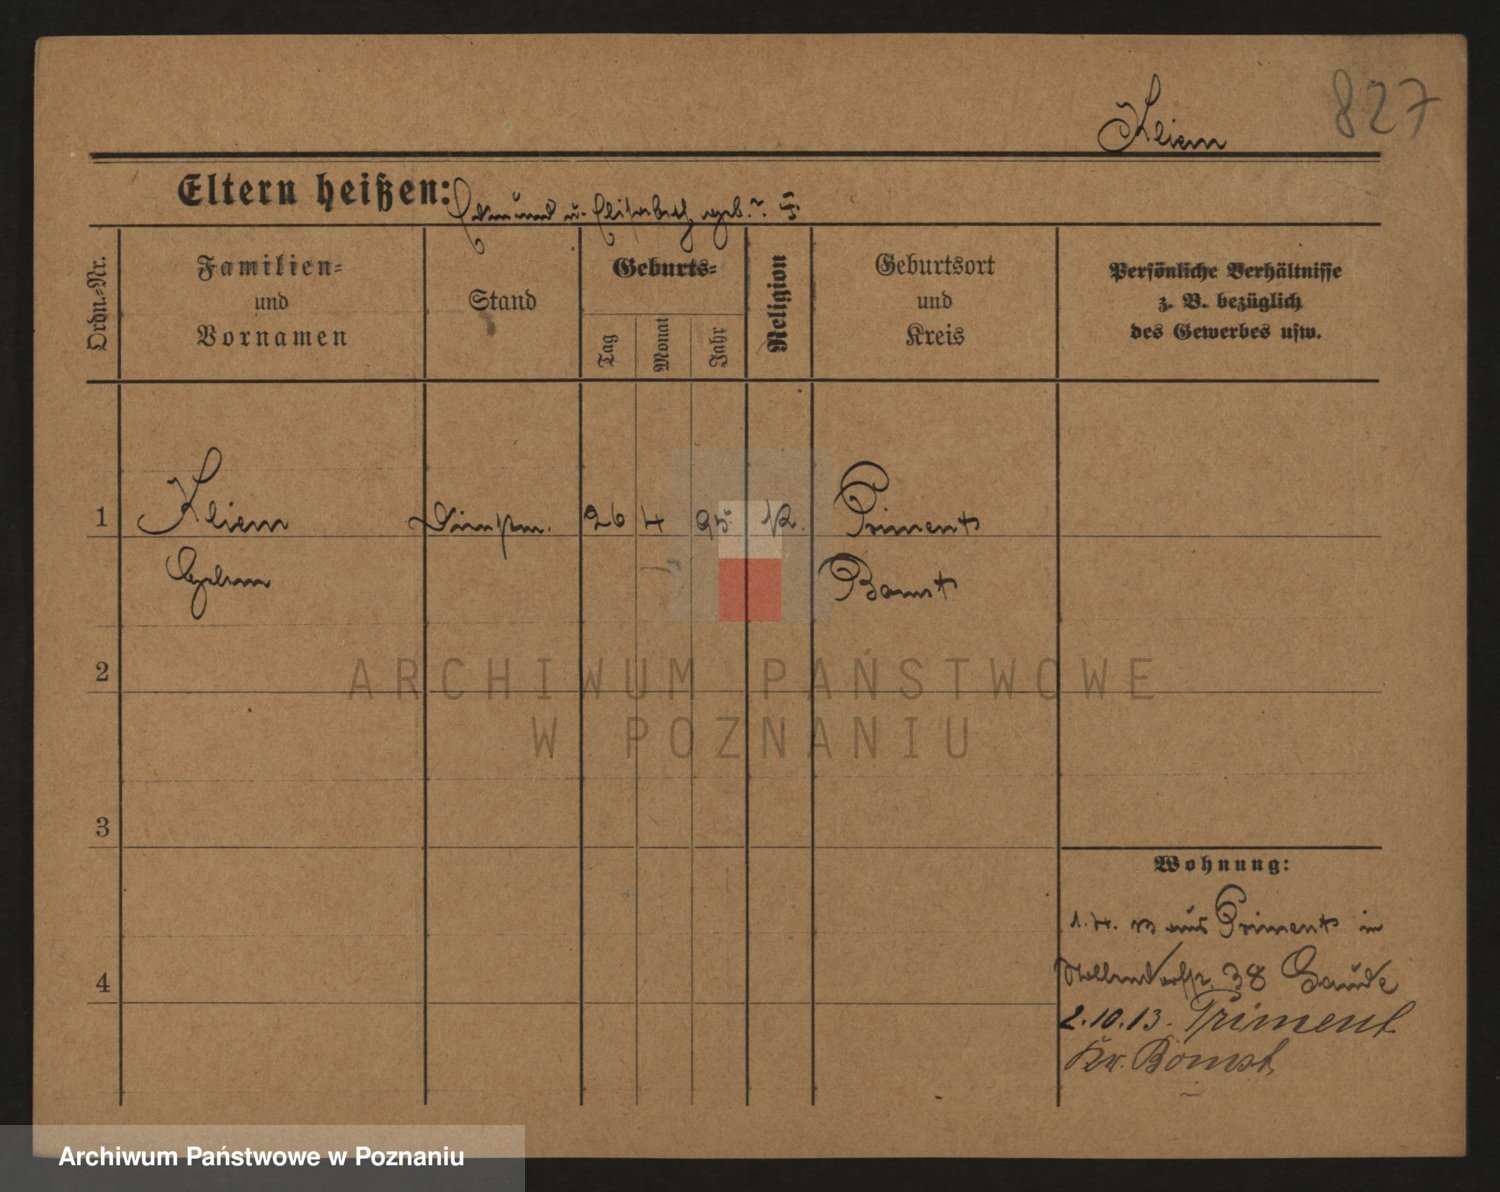 827
Kliem
Eltern heißen: Edmund u. Elisabeth geb.
Ordn.=Nr.
Familien=
und
Vornamen
Stand
Geburts=
Tag
Monat
Jahr
Religion
Geburtsort
und
Kreis
Persönliche Verhältnisse
z. B. bezüglich
des Gewerbes usw.
1 Kliem 26 4 95 K. Priment
Bomst
2
3
4
Wohnung:
1.4. 13 aus Priment in
38 Gaude
2.10.13. Priment
Kr. Bomst
ARCHIWUM PAŃSTWOWE
W POZNANIU
Archiwum Państwowe w Poznaniu